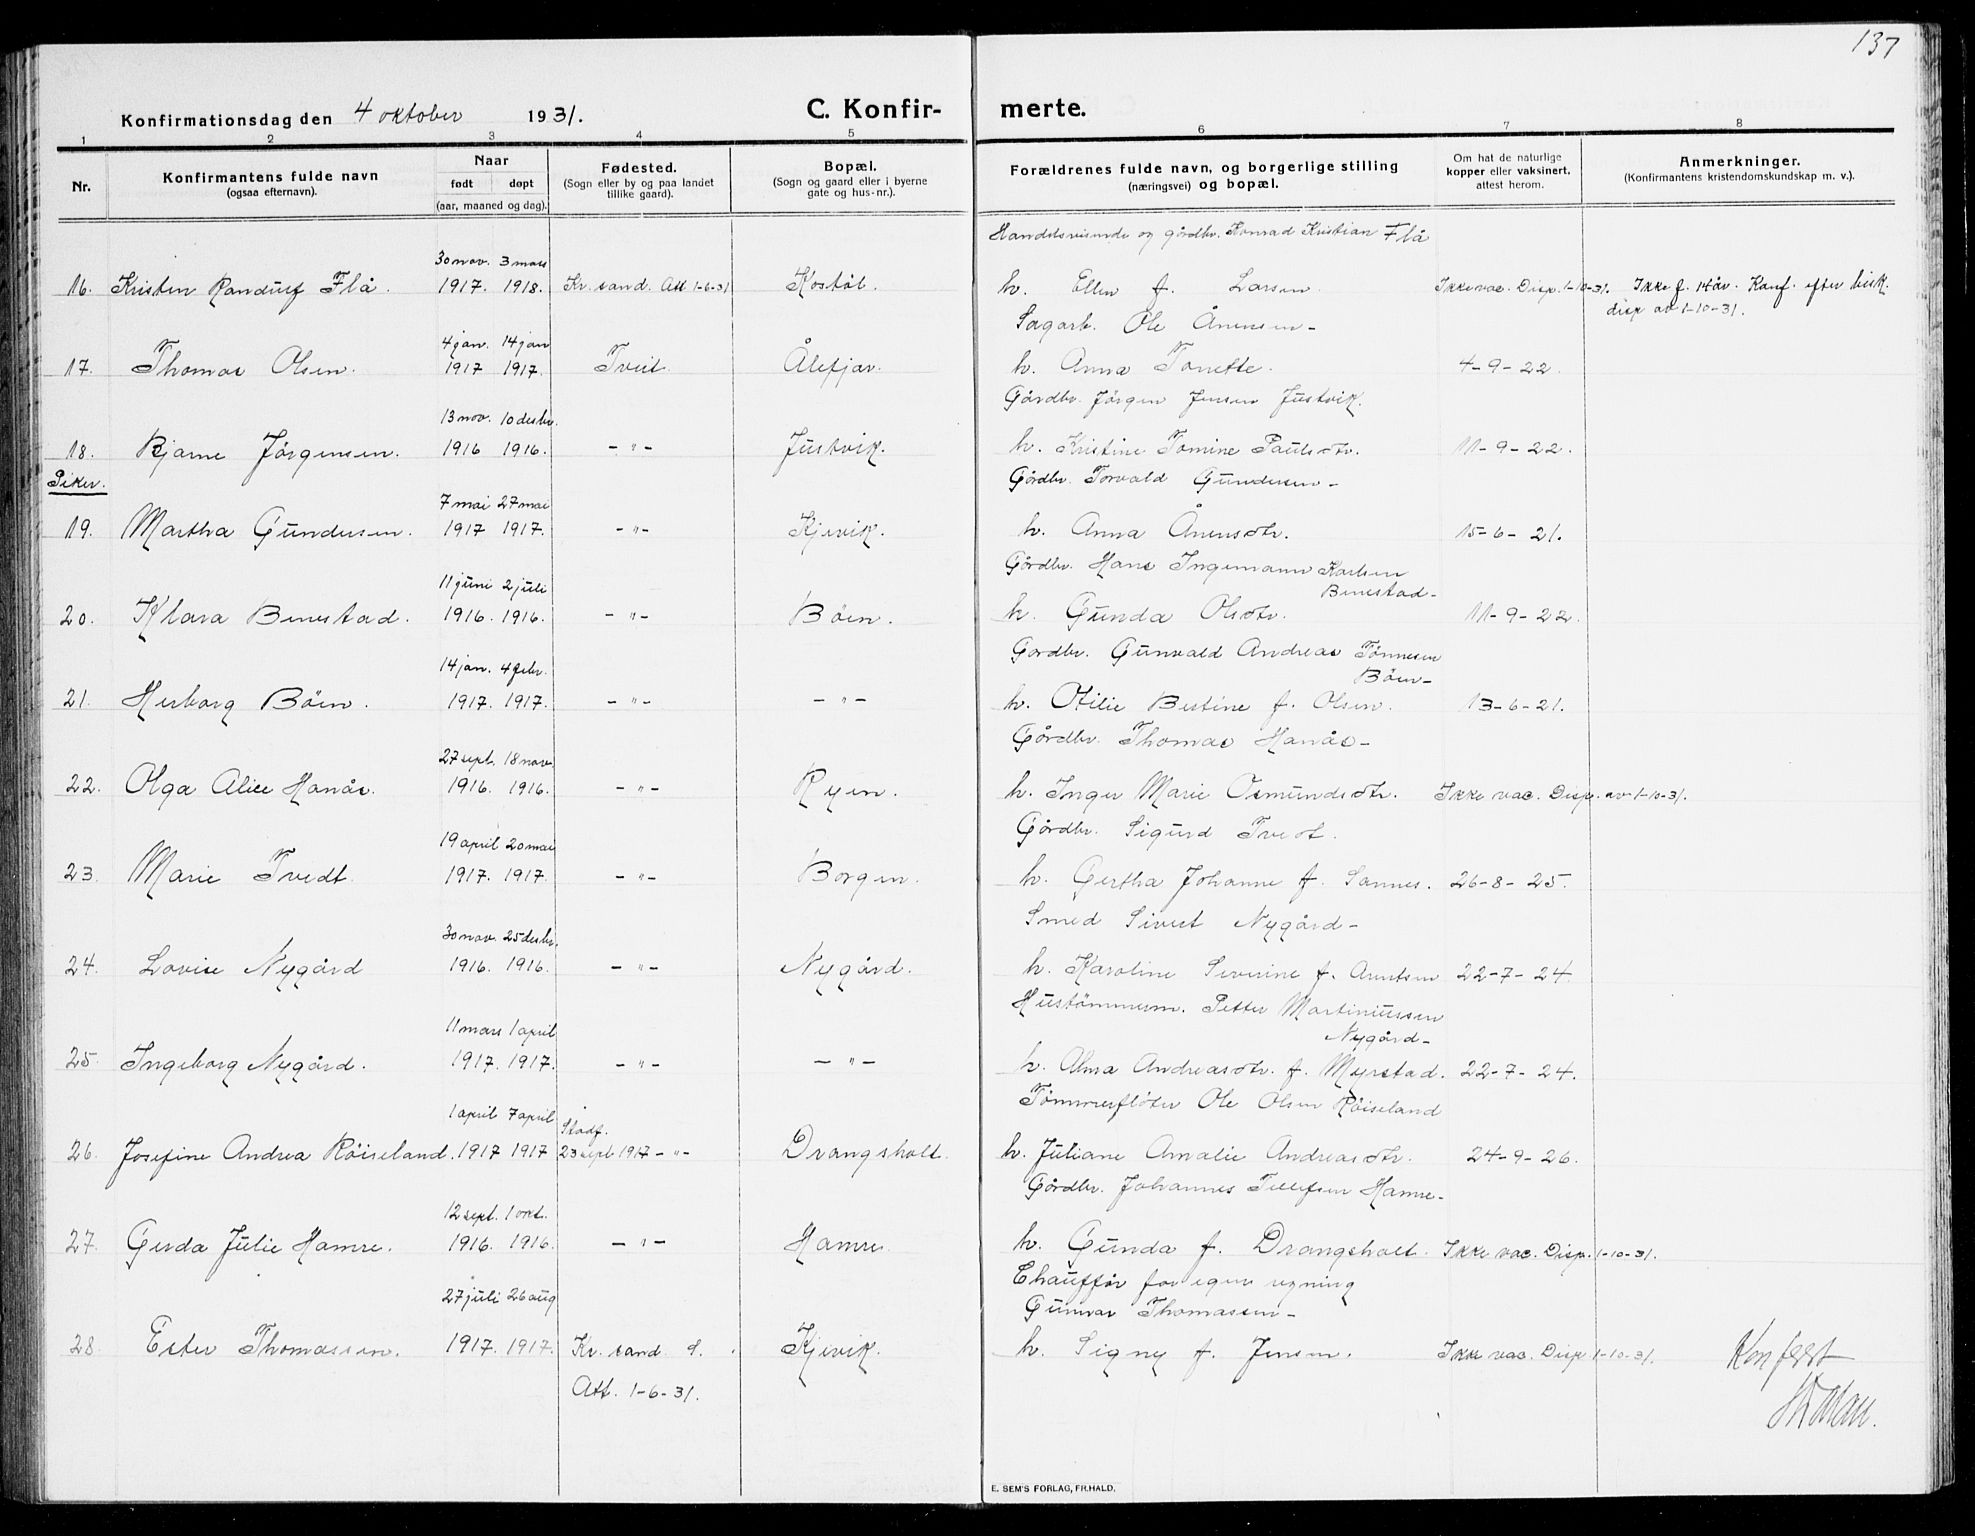 137
Konfirmationsdag den 4 oktober 1931.
C. Konfirmerte.
1 2 3 4 5 6 7 8
Nr.
Konfirmantens fulde navn
(ogsaa efternavn).
Naar
født døpt
(aar, maaned og dag).
Fødested.
(Sogn eller by og paa landet
tillike gaard).
Bopæl.
(Sogn og gaard eller i byerne
gate og hus-nr.).
Forældrenes fulde navn, og borgerlige stilling
(næringsvei) og bopæl.
Om hat de naturlige
kopper eller vaksinert,
attest herom.
Anmerkninger.
(Konfirmantens kristendomskundskap m. v.).
Handelsreisende og gårdbr. Konrad Kristian Flå
30 nov. 3 mars
16. Kristen Randulf Flå. 1917. 1918. Kr. sand. Att 1-6-31 Kostøl. h. Ellen f. Larsen. Ikke vac. Disp. 1-10-31. Ikke f. 14 år. Konf. efter bisk.
disp av 1-10-31.
Sagarb. Ole Ånensen-
4 jan. 14 jan
17. Thomas Olsen. 1917 1917. Tveit. Ålefjær. h. Anna Tonette. 4-9-22.
Gårdbr. Jørgen Jensen Justvik.
13 nov. 10 desbr.
18. Bjarne Jørgensen. 1916 1916. -"- Justvik. h. Kristine Tomine Paulsdtr. 11-9-22.
Piker.
Gårdbr. Torvald Gundersen-
7 mai 27 mai
19. Martha Gundersen. 1917 1917. -"- Kjevik. h. Anna Ånensdtr. 15-6-21.
Gårdbr. Hans Ingemann Karlsen
Benestad-
11 juni 2 juli
20. Klara Benestad. 1916. 1916. -"- Bøen. h. Gunda Olsdtr. 11-9-22.
Gårdbr. Gunvald Andreas Tønnesen
Bøen-
14 jan. 4 febr.
21. Herborg Bøen. 1917. 1917. -"- -"- h. Otilie Bestine f. Olsen. 13-6-21.
Gårdbr. Thomas Hanås-
27 sept. 18 nov.
22. Olga Alice Hanås. 1916. 1916. -"- Ryen. h. Inger Marie Osmundsdtr. Ikke vac. Disp. av 1-10-31.
Gårdbr. Sigurd Tvedt.
19 april 20 mai
23. Marie Tvedt. 1917. 1917. -"- Borgen. h. Gertha Johanne f. Sannes. 26-8-25.
Smed Sivert Nygård-
30 nov. 25 desbr.
24. Lovise Nygård 1916. 1916. -"- Nygård. h. Karoline Severine f. Arntsen 22-7-24.
Hustømmerm. Petter Martiniussen
Nygård-
11 mars 1 april
25. Ingeborg Nygård. 1917. 1917. -"- -"- h. Alma Andreasdtr. f. Myrstad. 22-7-24.
Tømmerfløter Ole Olsen Røiseland
1 april 7 april Stadf.
26. Josefine Andrea Røiseland. 1917 1917 23 sept 1917 -"- Drangsholt. h. Juliane Amalie Andreasdtr. 24-9-26.
Gårdbr. Johannes Tellefsen Hamre-
12 sept. 1 okt.
27. Gerda Julie Hamre. 1916. 1916. -"- Hamre. h. Gunda f. Drangsholt. Ikke vac. Disp. 1-10-31.
Chauffør for egen regning
27 juli 26 aug
Gunnar Thomassen-
28. Ester Thomassen. 1917. 1917. Kr. sand d. Kjevik. h. Signy f. Jensen. Ikke vac. Disp 1-10-31. Konferert
Att. 1-6-31.
E. SEM'S FORLAG, FR.HALD.